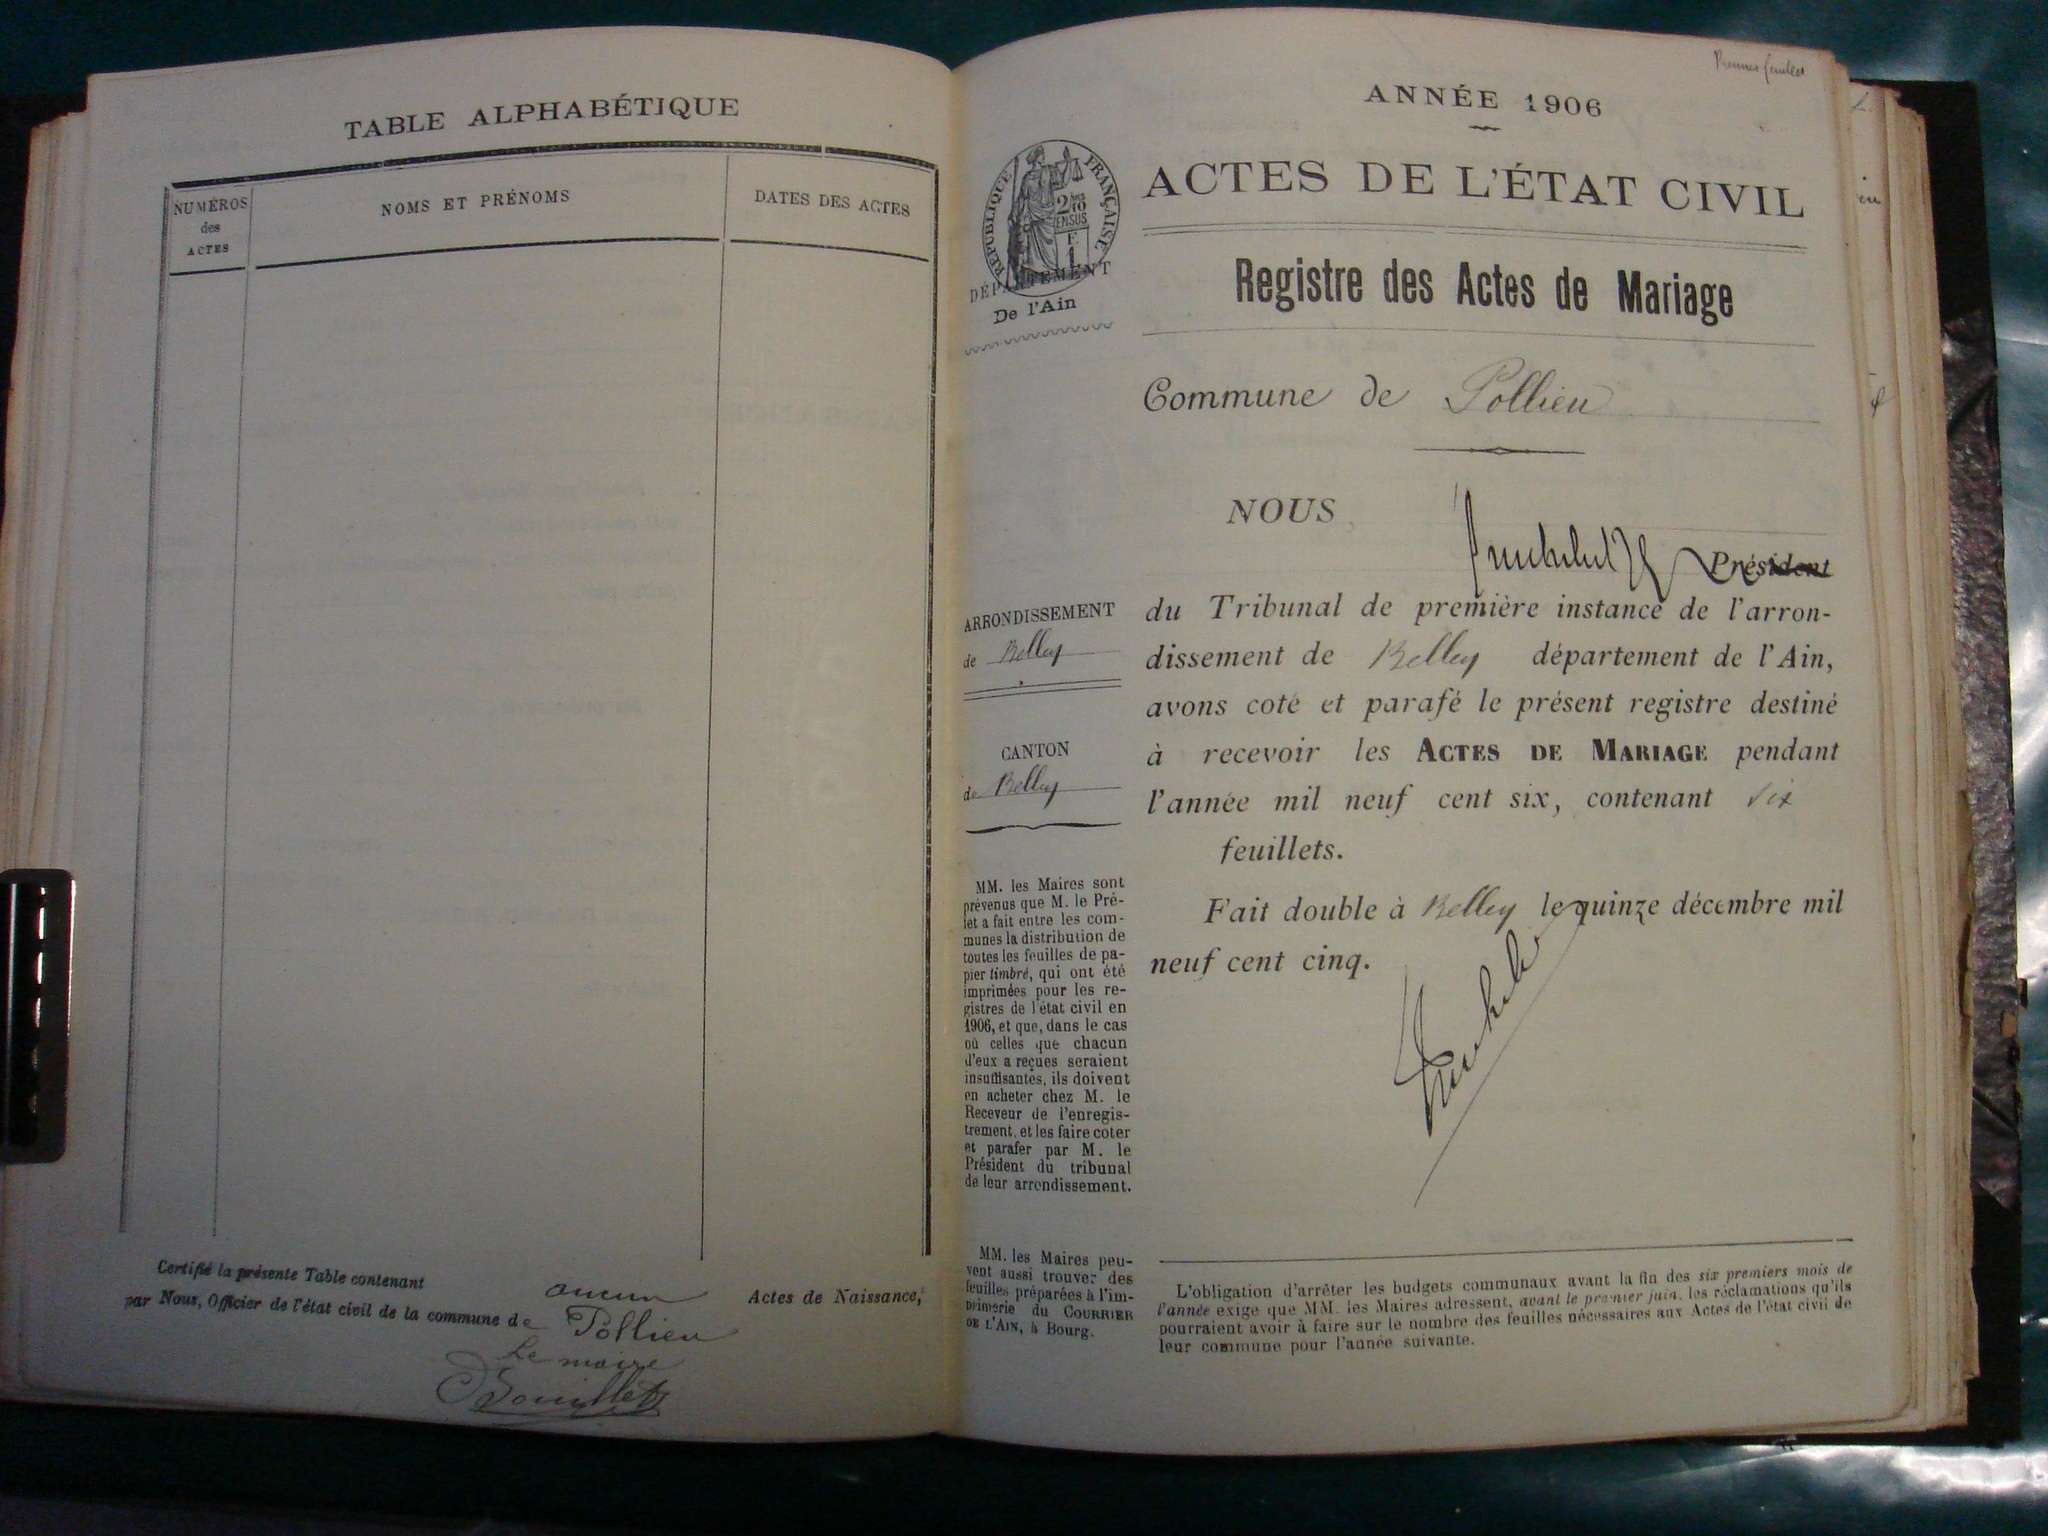 TABLE ALPHABÉTIQUE
NUMÉROS
des
ACTES
NOMS ET PRÉNOMS
DATES DES ACTES
Certifié la présente Table contenant aucun Actes de Naissance,
par Nous, Officier de l'état civil de la commune de Pollieu
Le maire
Premier feuillet
ANNÉE 1906
RÉPUBLIQUE FRANÇAISE
DÉPARTEMENT
De l'Ain
ACTES DE L'ÉTAT CIVIL
Registre des Actes de Mariage
Commune de Pollieu
ARRONDISSEMENT
de Belley
CANTON
de Belley
MM. les Maires sont
prévenus que M. le Pré-
fet a fait entre les com-
munes la distribution de
toutes les feuilles de pa-
pier timbré, qui ont été
imprimées pour les re-
gistres de l'état civil en
1906, et que, dans le cas
où celles que chacun
d'eux a reçues seraient
insuffisantes, ils doivent
en acheter chez M. le
Receveur de l'enregis-
trement, et les faire coter
et parafer par M. le
Président du tribunal
de leur arrondissement.
MM. les Maires peu-
vent aussi trouver des
feuilles préparées à l'im-
primerie du COURRIER
DE L'AIN, à Bourg.
NOUS
Président
du Tribunal de première instance de l'arron-
dissement de Belley département de l'Ain,
avons coté et parafé le présent registre destiné
à recevoir les ACTES DE MARIAGE pendant
l'année mil neuf cent six, contenant six
feuillets.
Fait double à Belley le quinze décembre mil
neuf cent cinq.
L'obligation d'arrêter les budgets communaux avant la fin des six premiers mois de
l'année exige que MM. les Maires adressent, avant le premier juin, les réclamations qu'ils
pourraient avoir à faire sur le nombre des feuilles nécessaires aux Actes de l'état civil de
leur commune pour l'année suivante.